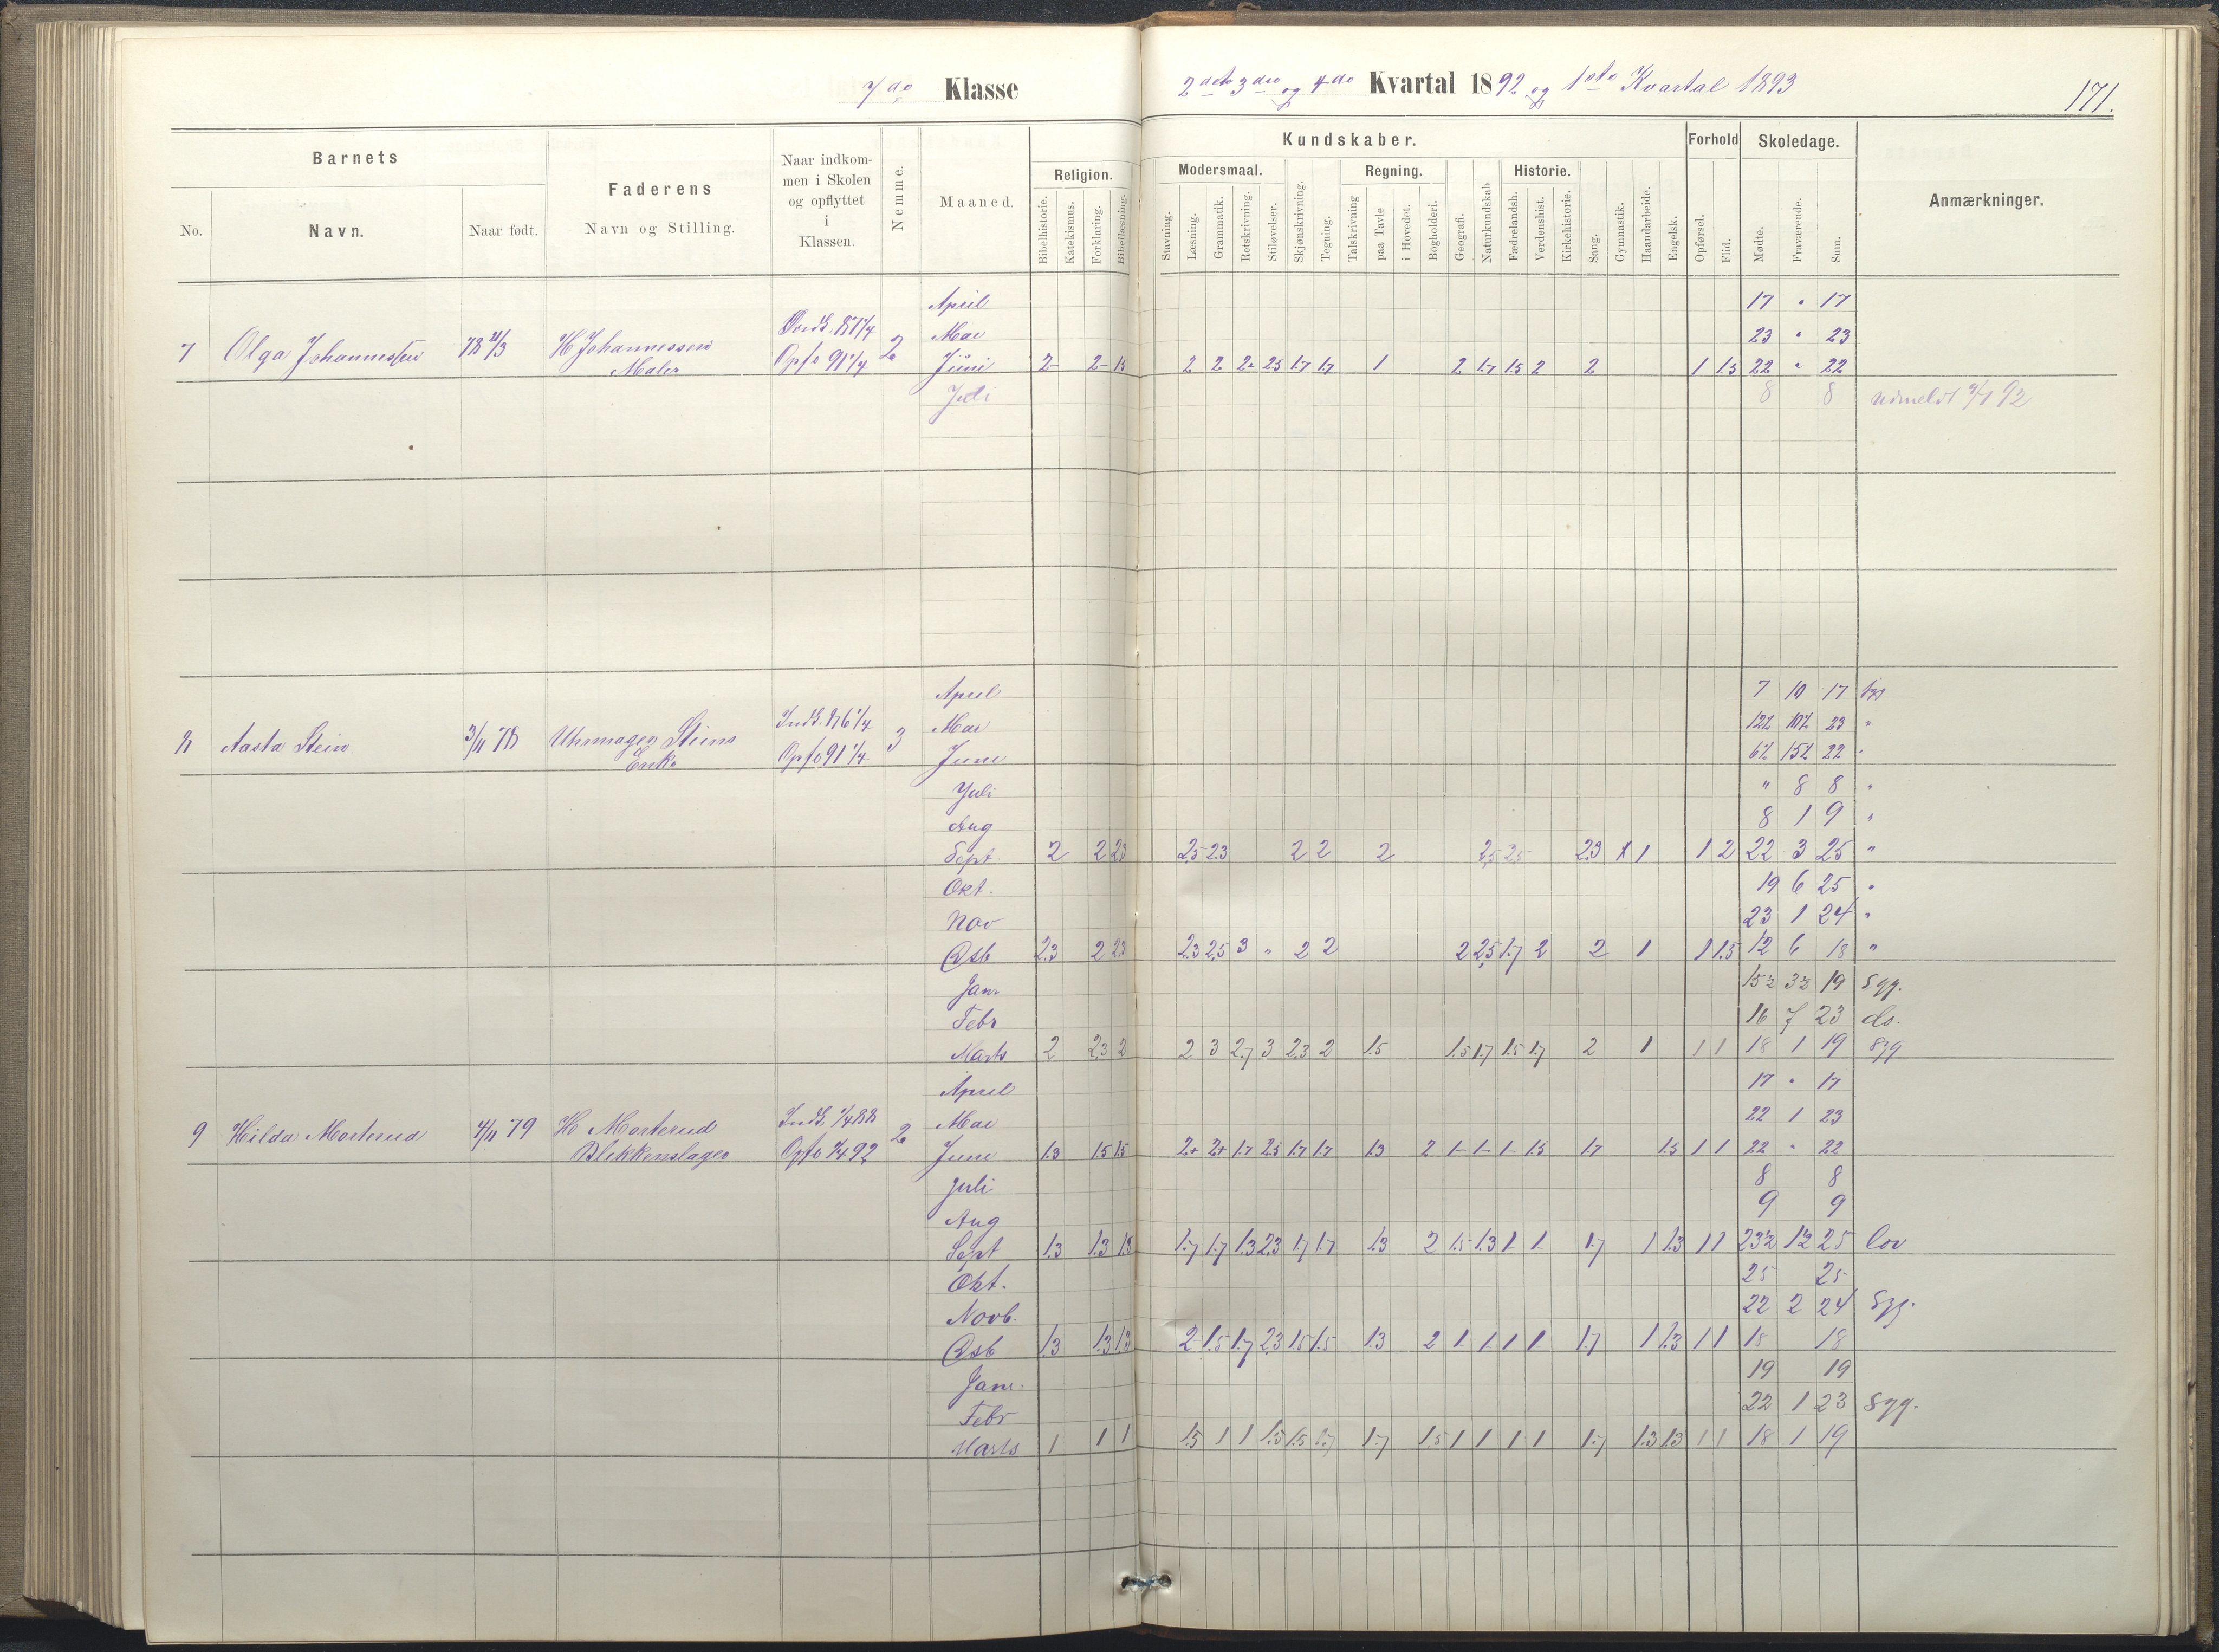 7de Klasse 2det 3die og 4de Kvartal 1892 og 1ste Kvartal 1893 171.
Barnets
No. Navn. Naar født.
Faderens
Navn og Stilling.
Naar indkom-
men i Skolen
og opflyttet
i
Klassen.
Nemme.
Maaned.
Kundskaber.
Religion.
Bibelhistorie. Katekismus. Forklaring. Bibellæsning.
Modersmaal.
Stavning. Læsning. Grammatik. Retskrivning. Stiløvelser. Skjønskrivning. Tegning.
Regning.
Talskrivning paa Tavle i Hovedet. Bogholderi. Geografi. Naturkundskab
Historie.
Fædrelandsh. Verdenshist. Kirkehistorie. Sang. Gymnastik. Haandarbeide. Engelsk.
Forhold
Opførsel. Flid.
Skoledage.
Mødte. Fraværende. Sum.
Anmærkninger.
April 17 " 17
Mai 23 " 23
7 Olga Johannessen 78 H Johannessen 87 1/4 2
Maler Opf. 91 1/4
Juni 2 2 1.5 2 2 2 2.5 1.7 1.7 1 2 1.7 1.5 2 2 1 1.5 22 " 22
Juli 8 8 Udmeldt 92
April 7 10 17 syg
Mai 12½ 10½ 23 "
8 Aasta Stein 3/11 78 Uhrmager Steins Indk. 86 1/4 3
Enke Opf. 91 1/4
June 6½ 15½ 22 "
Juli " 8 8 "
Aug 8 1 9 "
Sept. 2 2 2.3 2.5 2.3 2 2 2 2.5 2.5 2.3 1 1 2 22 3 25 "
Okt. 19 6 25 "
Nov 23 1 24 "
Dsb 2.3 2 2.3 2.3 2.5 3 " 2 2 2 2.5 1.7 2 2 1 1 1.5 12 6 18 "
Janr 15½ 3½ 19 Syg.
Febr 16 7 23 do.
Marts 2 2.3 2 2 3 2.7 3 2.3 2 1.5 1.5 1.7 1.5 1.7 2 1 1 1 18 1 19 Syg
April 17 " 17
Mai 22 1 23
9 Hilda Mosterud 4/11 79 H Mosterud Indk. 1/4 88 2
Blikkenslager Opf. 1/4 92
June 1.3 1.5 1.5 2+ 2+ 1.7 2.5 1.7 1.7 1.3 2 1- 1- 1- 1.5 1.7 1.5 1 1 22 " 22
Juli 8 8
Aug 9 9
Sept 1.3 1.3 1.3 1.7 1.7 1.3 2.3 1.7 1.7 1.3 2 1.5 1.3 1 1 1.7 1 1.3 1 1 23½ 1½ 25 Lov
Okt. 25 25
Novb. 22 2 24 Syg.
Dsb 1.3 1.3 1.3 2 1.5 1.7 2.3 1.5 1.5 1.3 2 1 1 1 1 1.7 1 1.3 1 1 18 18
Janr. 19 19
Febr 22 1 23 Syg.
Marts 1 1 1 1.5 1 1 1.5 1.5 1.7 1.7 1.5 1 1 1 1 1.7 1.3 1.3 1 1 18 1 19